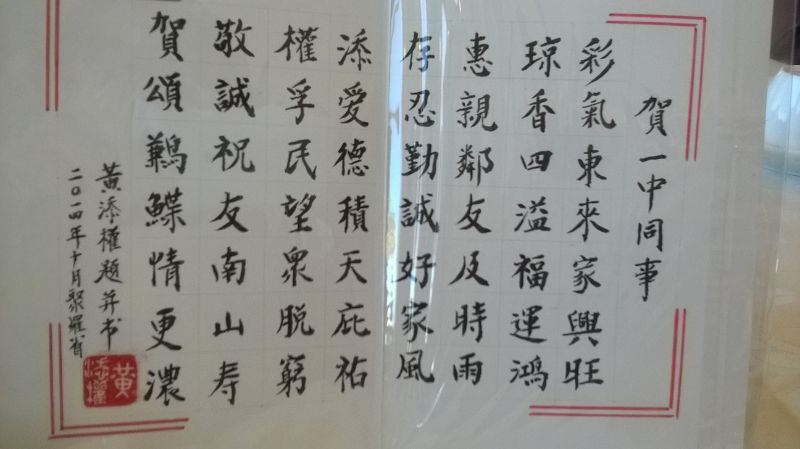 賀一中同事
彩氣東來家興旺
琼香四溢福運鴻
惠親鄰友及時雨
存忍勤誠好家風
添愛德積天庇祐
權孚民望衆脫窮
敬誠祝友南山寿
賀頌鶼鰈情更濃
黃添權題并书
二〇一四年十月聚羅省
黃添權